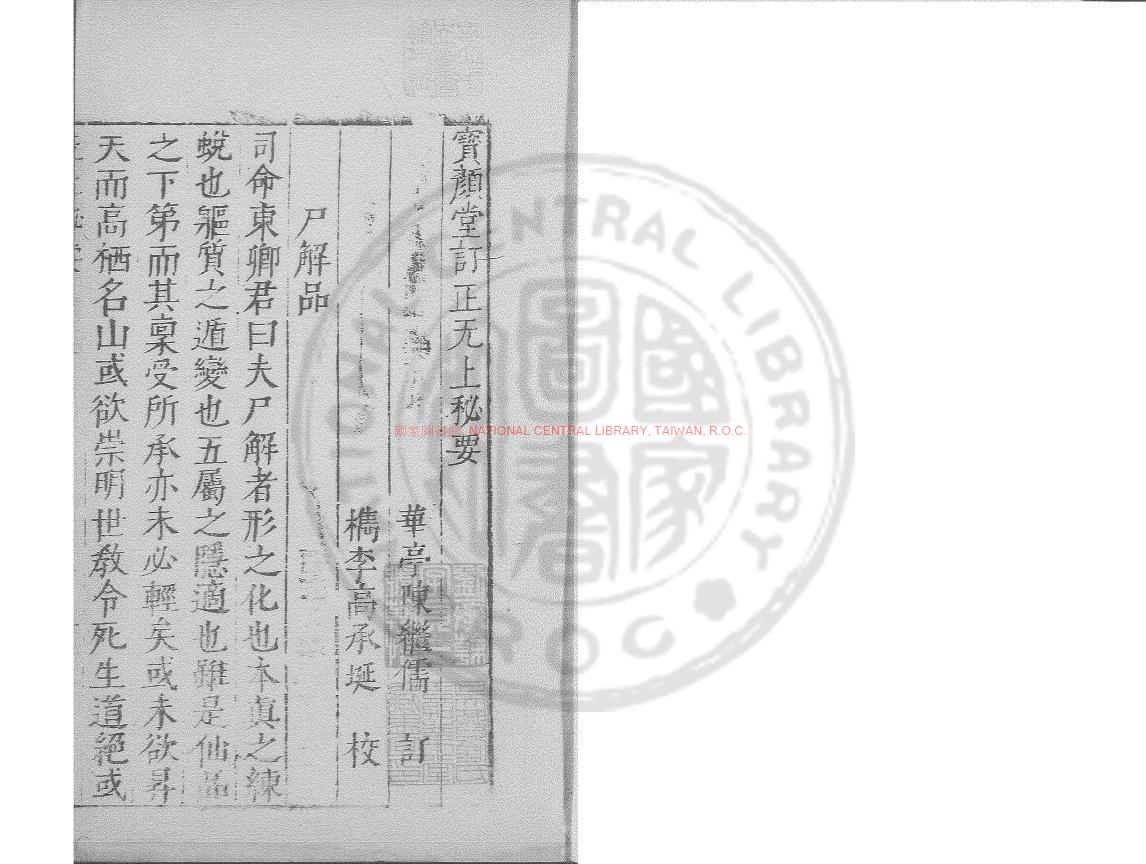 寳顔堂訂正无上秘要
華亭陳繼儒 訂
檇李高承埏 校
尸解品
司命東卿君曰夫尸解者形之化也本眞之練
蛻也軀質之遁變也五屬之隱適也雖是仙品
之下第而其稟受所承亦未必輕矣或未欲昇
天而高栖名山或欲崇明世教令死生道絕或
國家圖書館 NATIONAL CENTRAL LIBRARY, TAIWAN, R.O.C.
NATIONAL CENTRAL LIBRARY
R.O.C